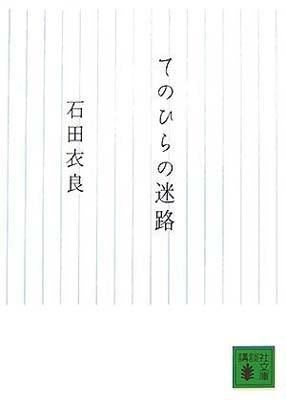 てのひらの迷路
石田衣良
講談社文庫